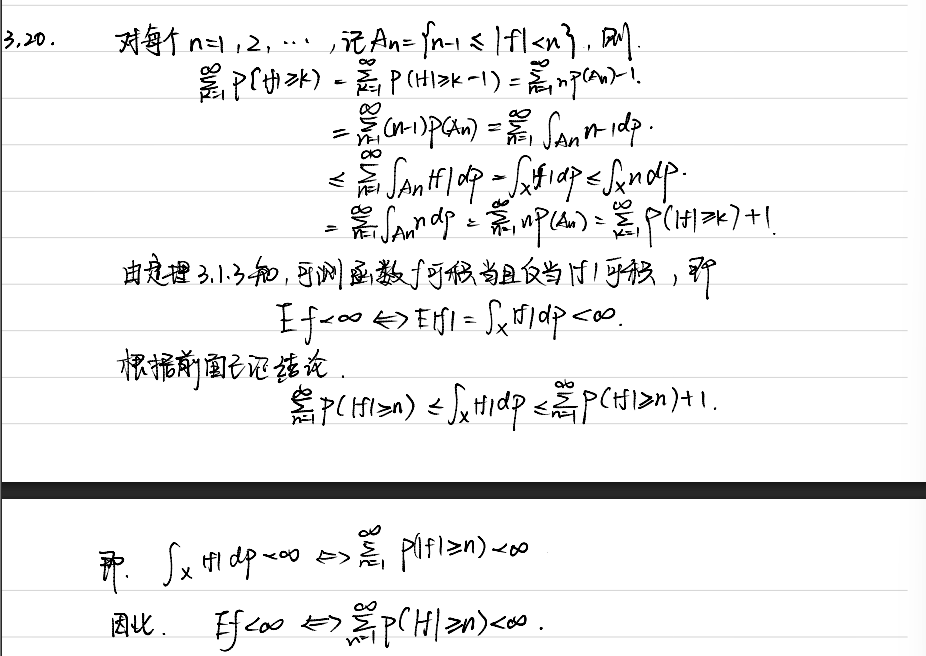 3.20. 对每个 n=1,2,…,记 Aₙ={n-1≤|f|<n},则.
∑_{k=1}^{∞} P(|f|≥k) = ∑_{k=1}^{∞} P(|f|≥k-1) = ∑_{n=1}^{∞} nP(Aₙ)-1.
= ∑_{n=1}^{∞} (n-1)P(Aₙ) = ∑_{n=1}^{∞} ∫_{Aₙ} n-1 dp.
≤ ∑_{n=1}^{∞} ∫_{Aₙ} |f| dp = ∫_X |f| dp ≤ ∫_X n dp.
= ∑_{n=1}^{∞} ∫_{Aₙ} n dp = ∑_{n=1}^{∞} nP(Aₙ) = ∑_{k=1}^{∞} P(|f|≥k)+1.
由定理3.1.3知,可测函数f可积当且仅当|f|可积,即
Ef<∞ ⟺ E|f| = ∫_X |f| dp <∞.
根据前面已证结论.
∑_{n=1}^{∞} P(|f|≥n) ≤ ∫_X |f| dp ≤ ∑_{n=1}^{∞} P(|f|≥n)+1.
即. ∫_X |f| dp <∞ ⟺ ∑_{n=1}^{∞} P(|f|≥n)<∞
因此. Ef<∞ ⟺ ∑_{n=1}^{∞} P(|f|≥n)<∞.